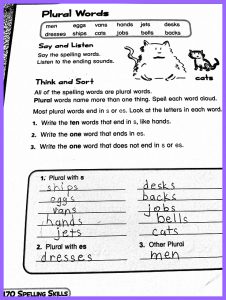 Plural Words
men eggs vans hands jets desks
dresses ships cats jobs bells backs
Say and Listen
Say the spelling words.
Listen to the ending sounds.
cats
Think and Sort
All of the spelling words are plural words.
Plural words name more than one thing. Spell each word aloud.
Most plural words end in s or es. Look at the letters in each word.
1. Write the ten words that end in s, like hands.
2. Write the one word that ends in es.
3. Write the one word that does not end in s or es.
1. Plural with s
ships desks
eggs backs
vans jobs
hands bells
jets cats
2. Plural with es 3. Other Plural
dresses men
170 SPELLING SKILLS